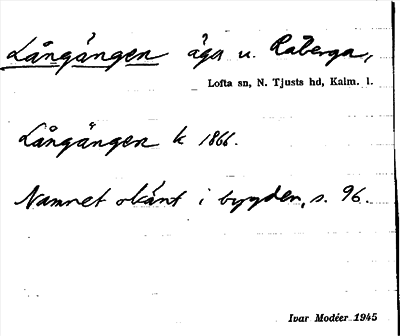 Långängen äga u. Raberga,
Lofta sn, N. Tjusts hd, Kalm. l.
Långängen k 1866.
Namnet okänt i bygden, s. 96.
Ivar Modéer 1945